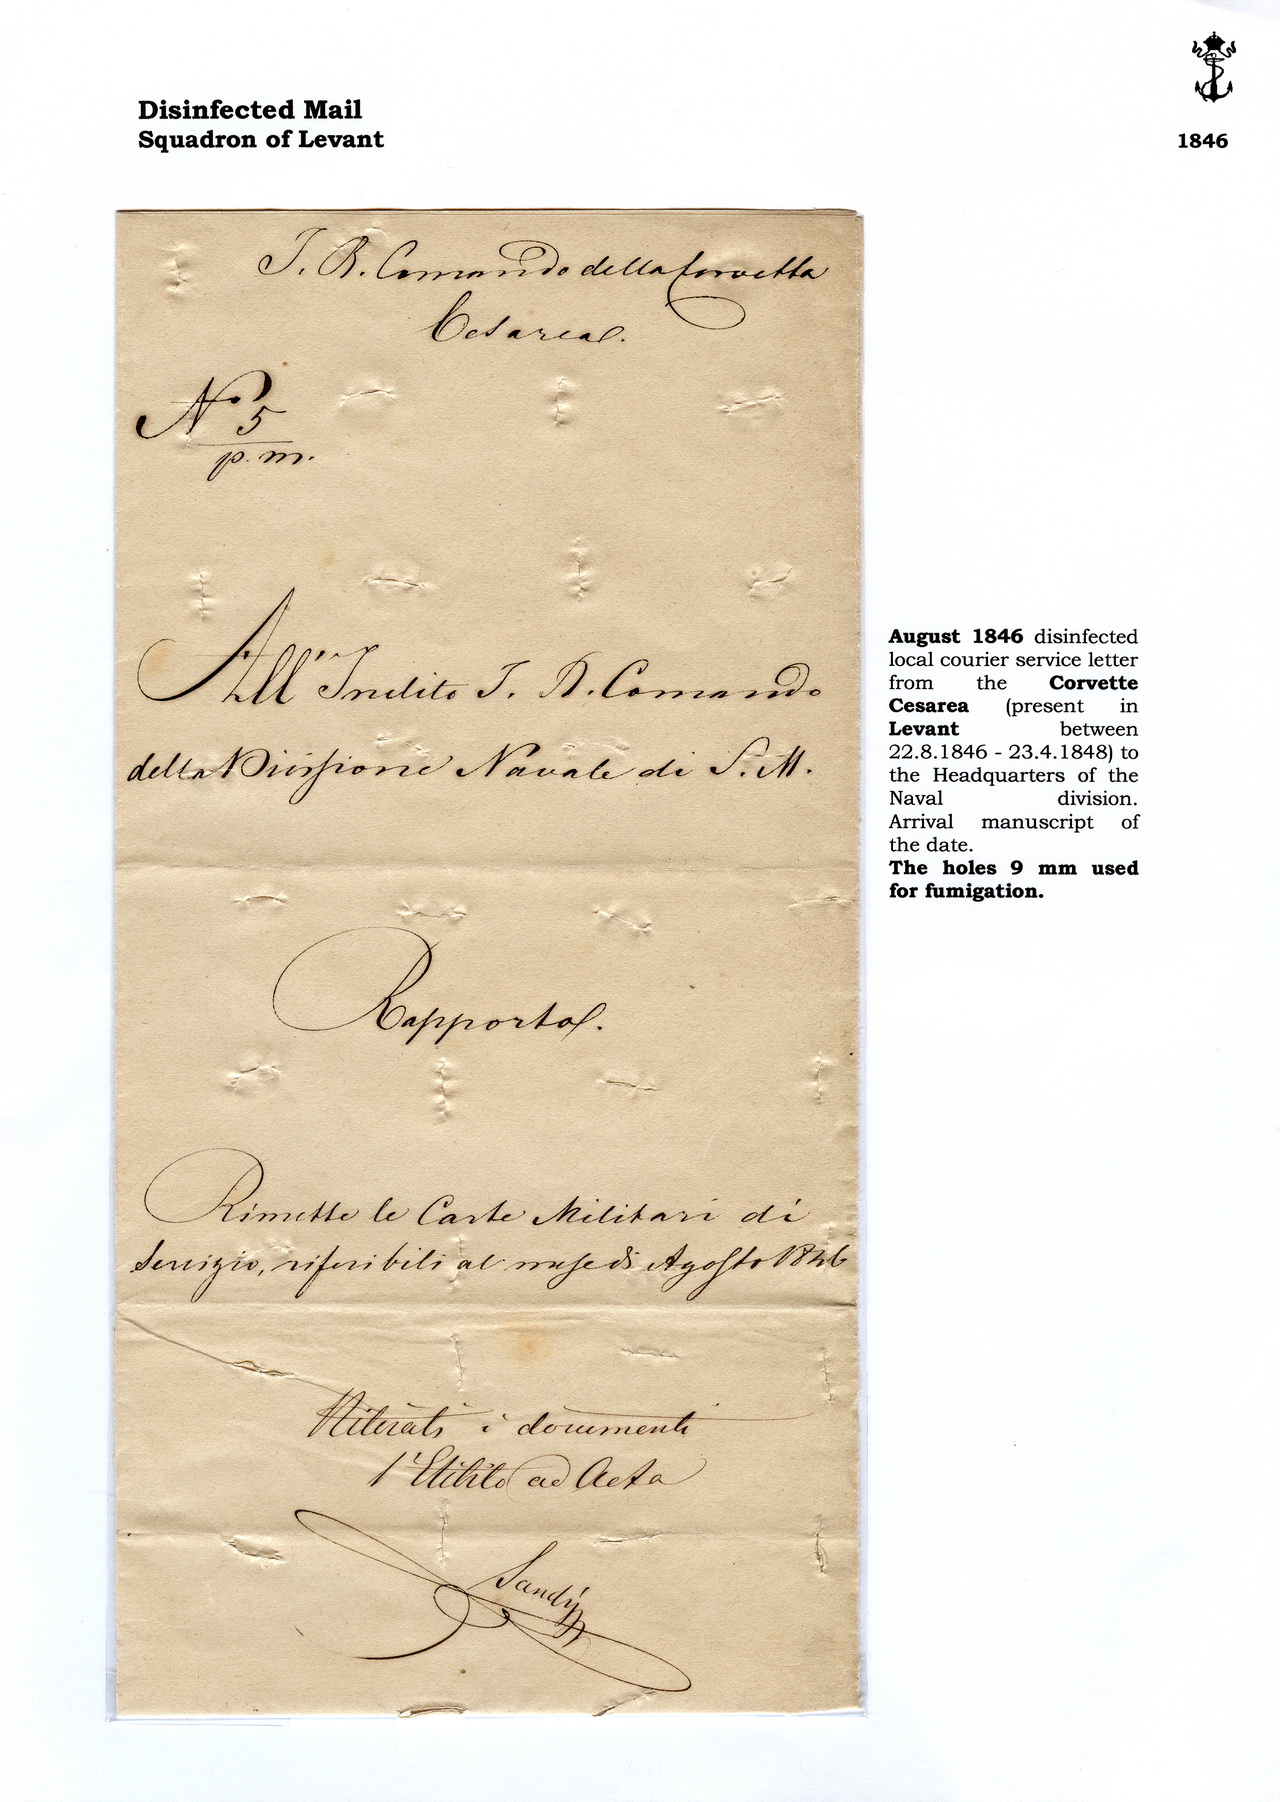 Disinfected Mail
Squadron of Levant
1846
I. R. Comando della Corvetta
Cesarea.
N° 5
p. m.
All' Inclito I. R. Comando
della Divisione Navale di S. M.
August 1846 disinfected
local courier service letter
from the Corvette
Cesarea (present in
Levant between
22.8.1846 - 23.4.1848) to
the Headquarters of the
Naval division.
Arrival manuscript of
the date.
The holes 9 mm used
for fumigation.
Rapporto.
Rimette le Carte Militari di
Servizio, riferibili al mese di Agosto 1846
i documenti
ad Acta